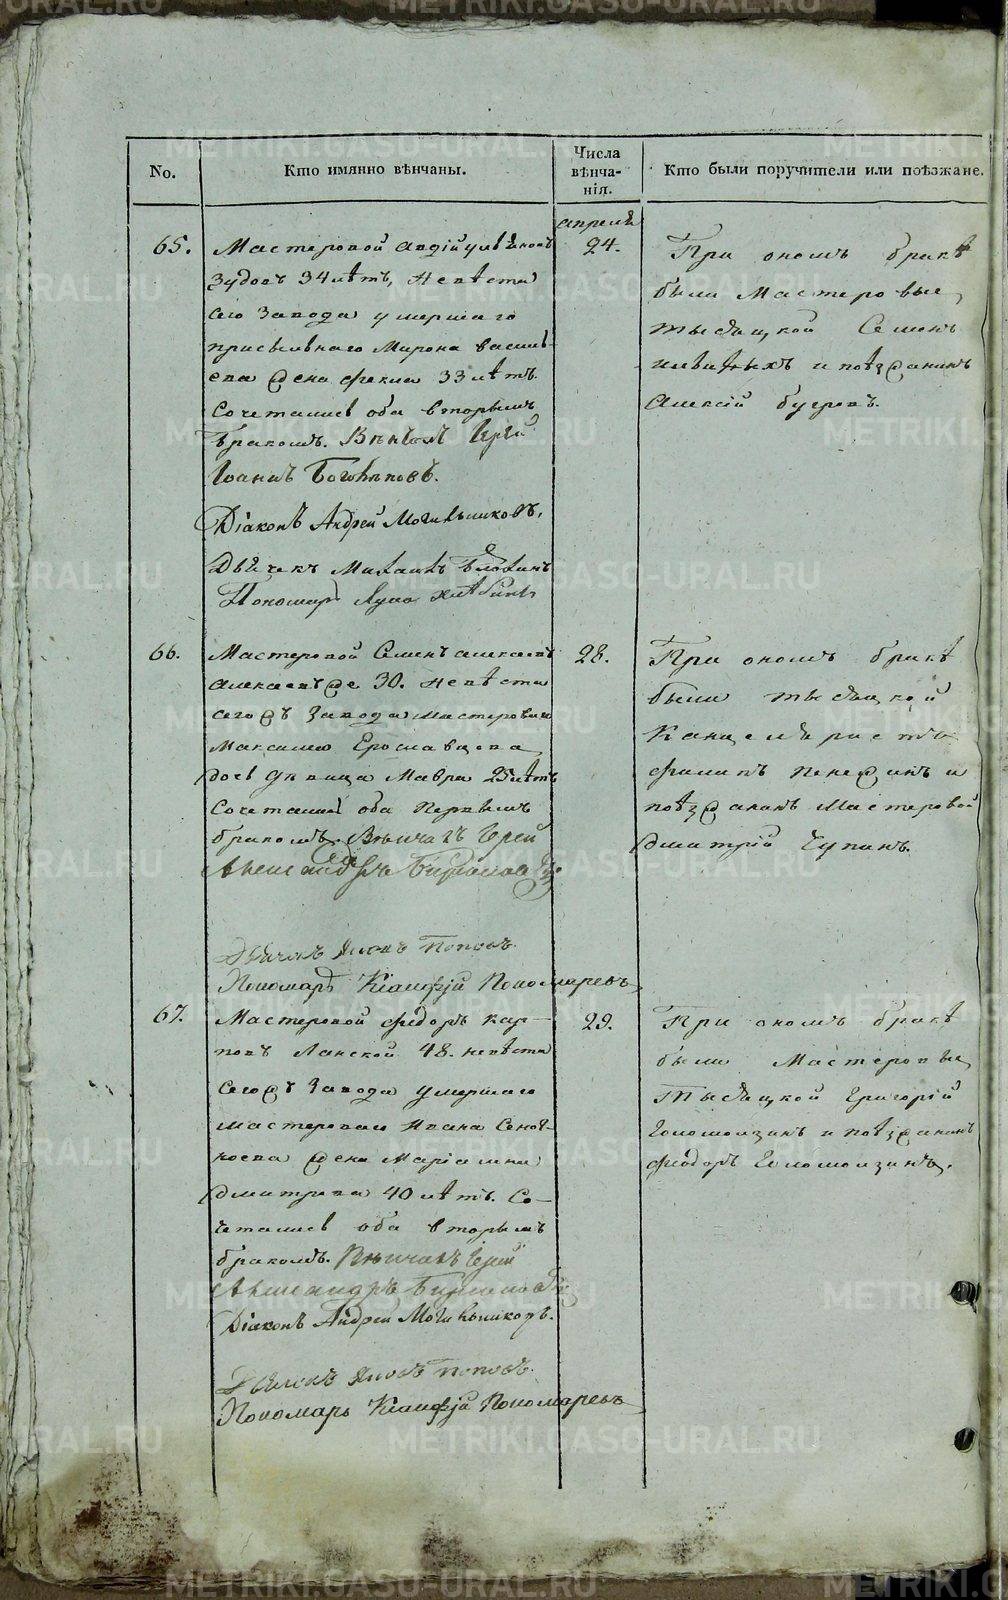 No.
Кто имянно вѣнчаны.
Числа
вѣнча-
нія.
Кто были поручители или поѣзжане.
апреля
65.
Мастеровой Авдій
Зудовъ 34 лѣтъ, невѣста
сего завода умершаго
Мирона василь-
ева жена фекла 33 лѣтъ.
Сочетались оба вторымъ
бракомъ. Вѣнчалъ Іерей
Іоаннъ Боголѣповъ.
Діаконъ Андрей Могильниковъ.
Дьячекъ Михаилъ
Пономарь Лука Хлѣбинъ
24.
При ономъ бракѣ
были Мастеровые,
тысяцкой Семенъ
и поѣзжанинъ
Алексій бугровъ.
66.
Мастеровой Семенъ алексѣевъ
30. невѣста
сегожъ завода мастероваго
Максима Ерославцова
дочь дѣвица Мавра 25 лѣтъ
Сочетались оба первымъ
бракомъ. Вѣнчалъ Іерей
Александръ
Дьячекъ Яковъ Поповъ.
Пономарь Пономаревъ
28.
При ономъ бракѣ
были тысяцкой
Канцеляристъ
филипъ и
поѣзжанинъ Мастеровой
Дмитрій Чупинъ.
67.
Мастеровой федоръ кар-
повъ Ланской 48. невѣста
сегожъ завода умершаго
мастероваго Ивана
жена Маріамна
Дмитрева 40 лѣтъ. Со-
четались оба вторымъ
бракомъ. Вѣнчалъ Іерей
Александръ
Діаконъ Андрей Могильниковъ.
Дьячекъ Яковъ Поповъ.
Пономарь Пономаревъ
29.
При ономъ бракѣ
были Мастеровые,
тысяцкой Григорій
Голомолзинъ и поѣзжанинъ
федоръ Голомолзинъ.
METRIKI.GASO-URAL.RU